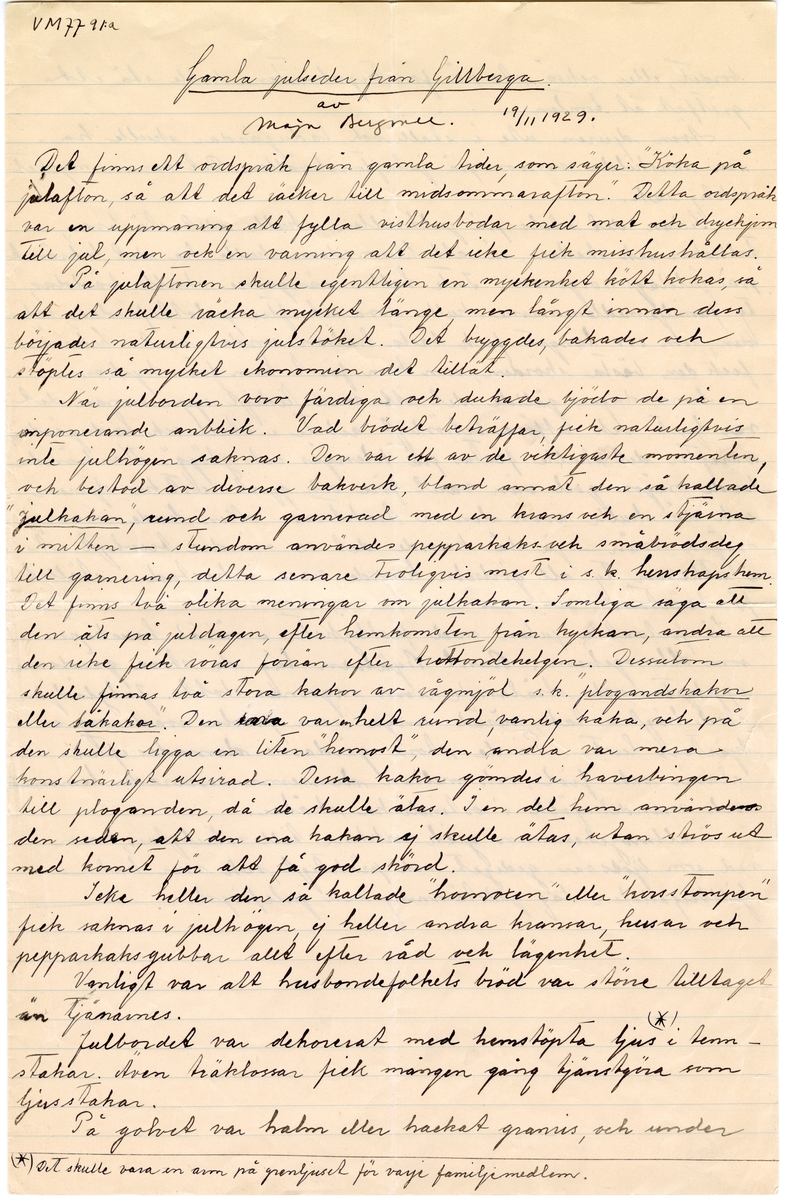 VM77 91:a
Gamla julseder från Gillberga.
av
Maja Bergmee. 19/11 1929.
Det finns ett ordspråk från gamla tider, som säger: "Koka på
julafton, så att det räcker till midsommarafton." Detta ordspråk
var en uppmaning att fylla visthusbodar med mat och dryckjom
till jul, men ock en varning att det icke fick misshushållas.
På julaftonen skulle egentligen en myckenhet kött kokas, så
att det skulle räcka mycket länge, men långt innan dess
började naturligtvis julstöket. Det bryggdes, bakades och
stöptes så mycket ekonomien det tillät.
När julborden voro färdiga och dukade bjödo de på en
imponerande anblick. Vad brödet beträffar, fick naturligtvis
inte julhögen saknas. Den var ett av de viktigaste momenten,
och bestod av diverse bakverk, bland annat den så kallade
"julkakan", rund och garnerad med en krans och en stjärna
i mitten — stundom användes pepparkaks- och småbrödsdeg
till garnering, detta senare troligvis mest i s.k. herrskapshem.
Det finns två olika meningar om julkakan. Somliga säga att
den åts på juldagen, efter hemkomsten från kyrkan, andra att
den icke fick röras förrän efter trettondehelgen. Dessutom
skulle finnas två stora kakor av rågmjöl s.k. "plogandskakor
eller såkakor". Den ena var en helt rund, vanlig kaka, och på
den skulle ligga en liten "hemost", den andra var mera
konstnärligt utsirad. Dessa kakor gömdes i haverbingen
till ploganden, då de skulle ätas. I en del hem användes
den seden, att den ena kakan ej skulle ätas, utan strös ut
med kornet för att få god skörd.
Icke heller den så kallade "hornoxen" eller "korsstompen"
fick saknas i julhögen, ej heller andra kransar, kusar och
pepparkaksgubbar allt efter råd och lägenhet.
Vanligt var att husbondefolkets bröd var större tilltaget
än tjänarnes.
Julbordet var dekorerat med hemstöpta ljus (*) i tenn-
stakar. Även träklossar fick mången gång tjänstgöra som
ljusstakar.
På golvet var halm eller hackat granris, och under
(*) Det skulle vara en arm på grenljuset för varje familjemedlem.